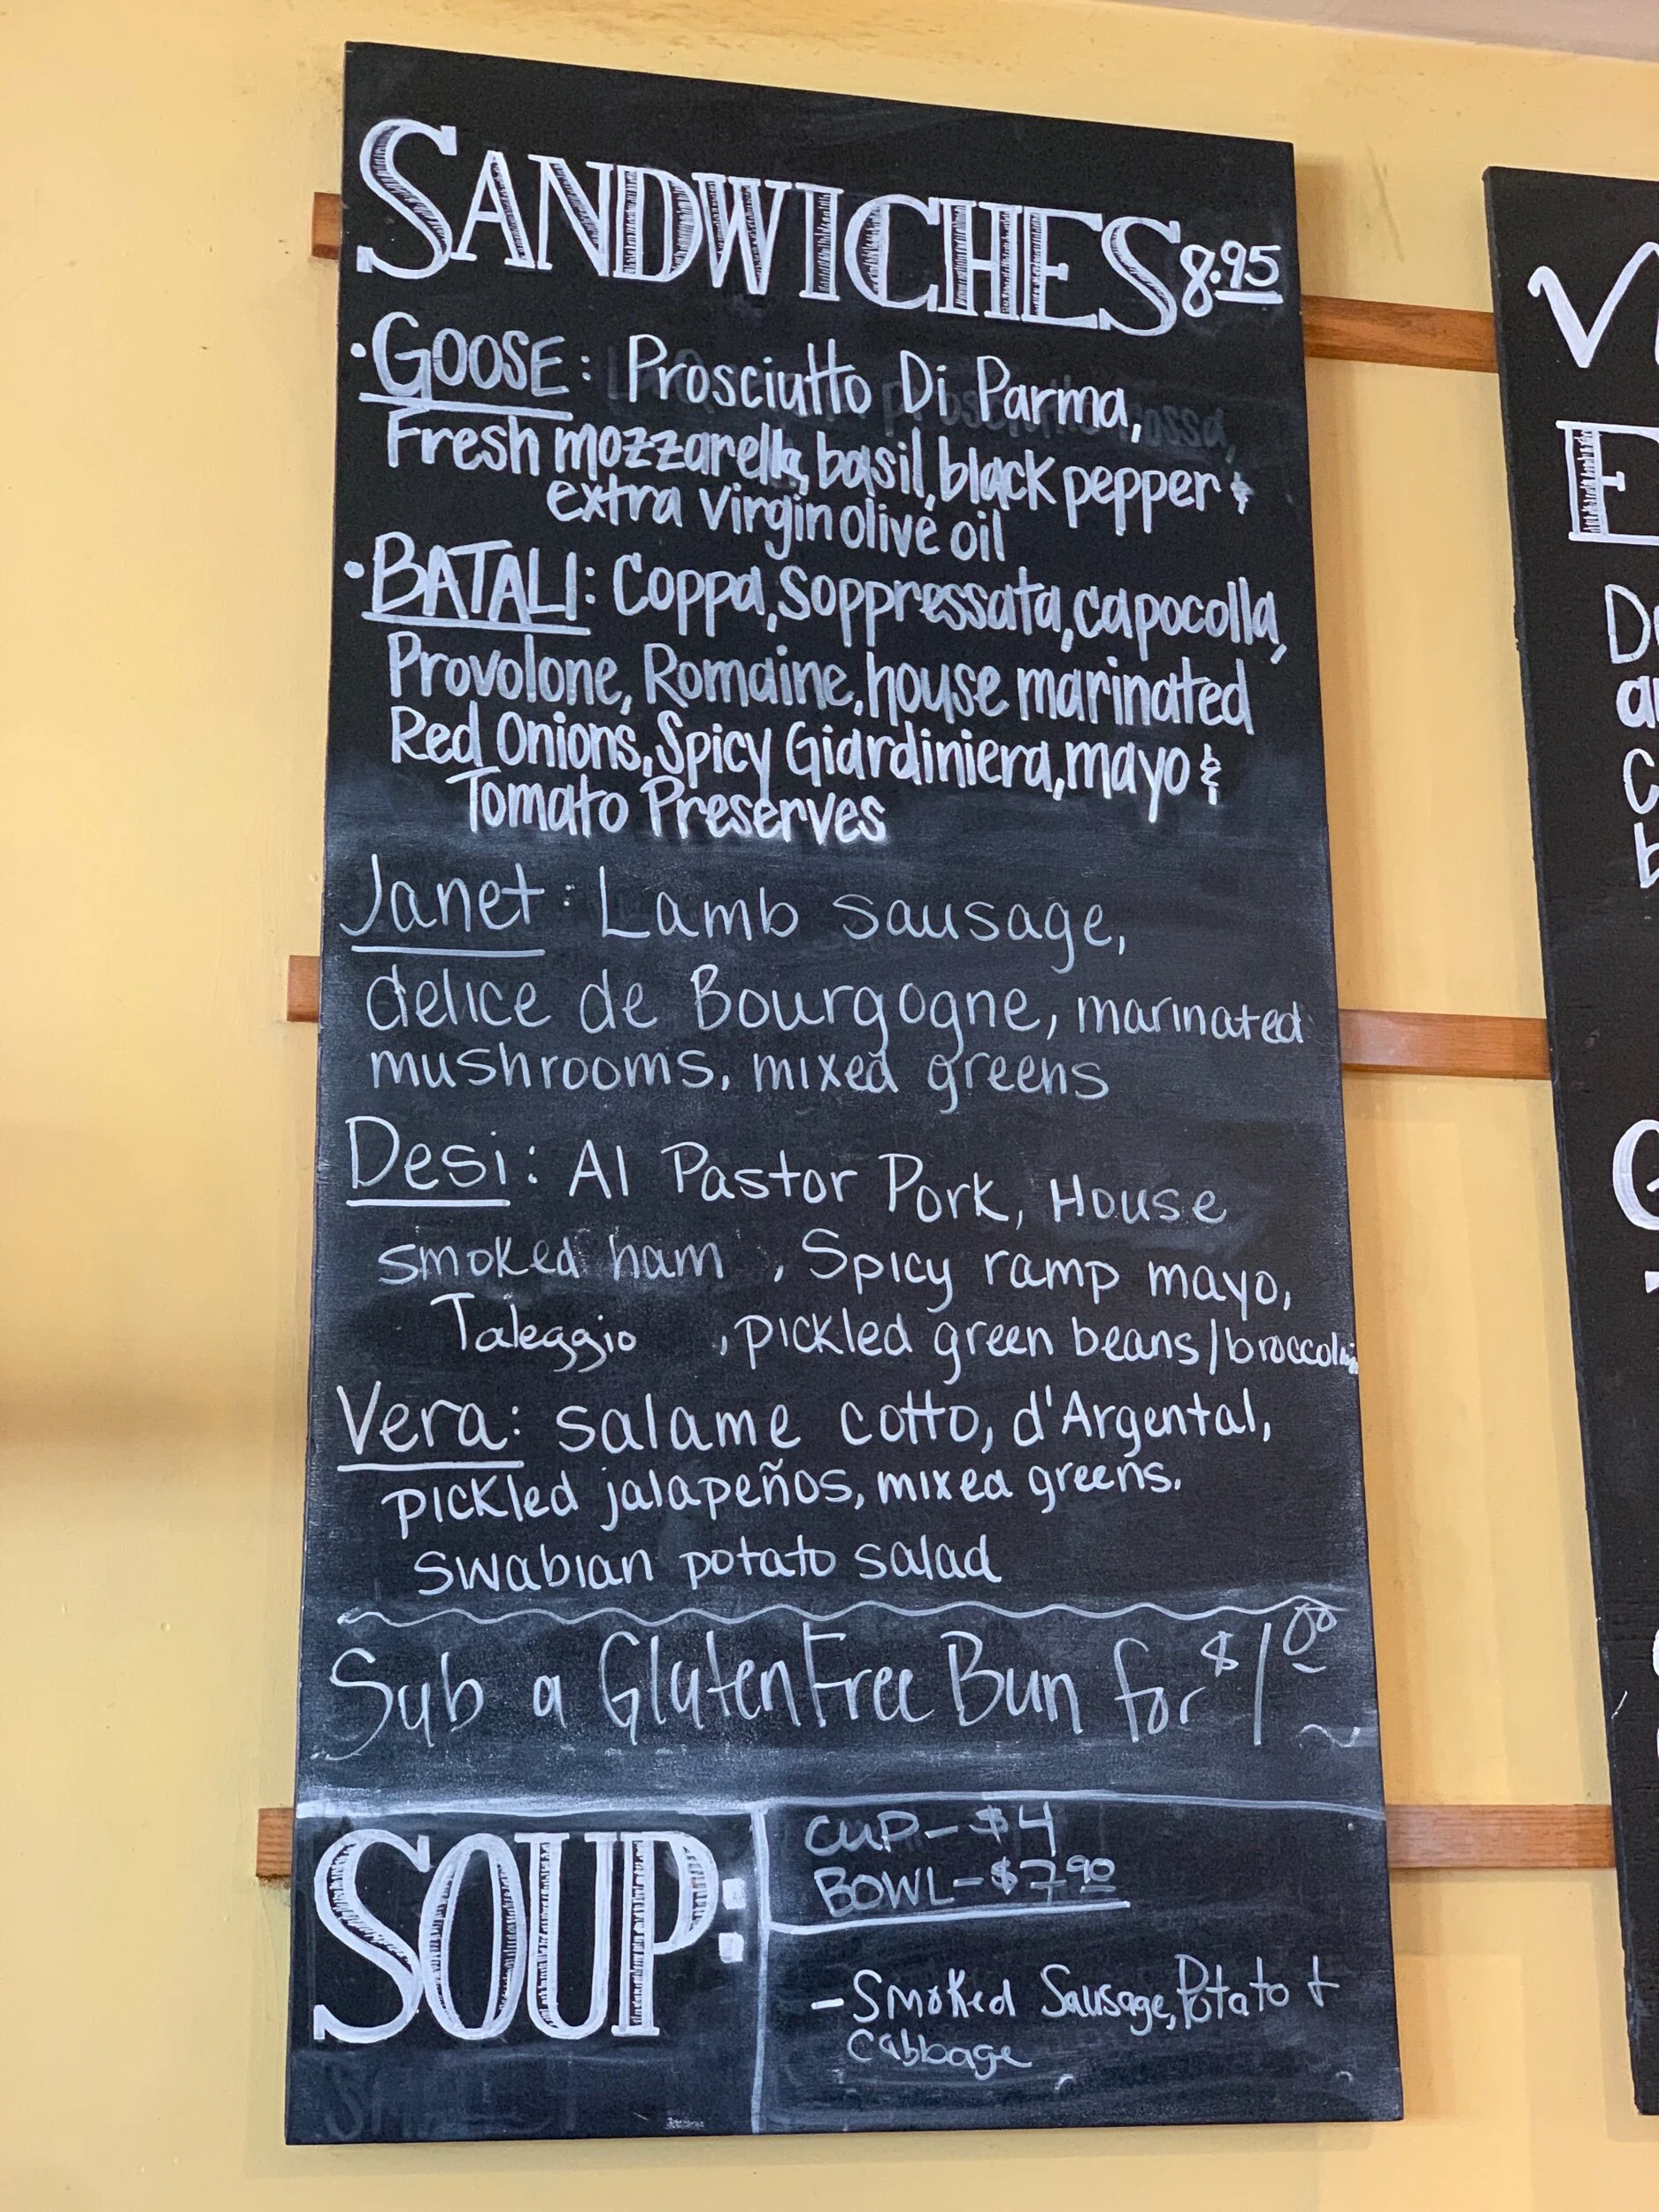 SANDWICHES 8.95
• GOOSE: Prosciutto Di Parma,
Fresh mozzarella, basil, black pepper &
extra virgin olive oil
• BATALI: Coppa, Soppressata, capocolla,
Provolone, Romaine, house marinated
Red Onions, Spicy Giardiniera, mayo &
Tomato Preserves
Janet: Lamb sausage,
delice de Bourgogne, marinated
mushrooms, mixed greens
Desi: Al Pastor Pork, House
smoked ham , Spicy ramp mayo,
Taleggio , pickled green beans/broccolini
Vera: salame cotto, d'Argental,
pickled jalapeños, mixed greens.
swabian potato salad
Sub a Gluten Free Bun for $1.00
SOUP:
CUP - $4
BOWL - $7.90
- Smoked Sausage, Potato +
Cabbage